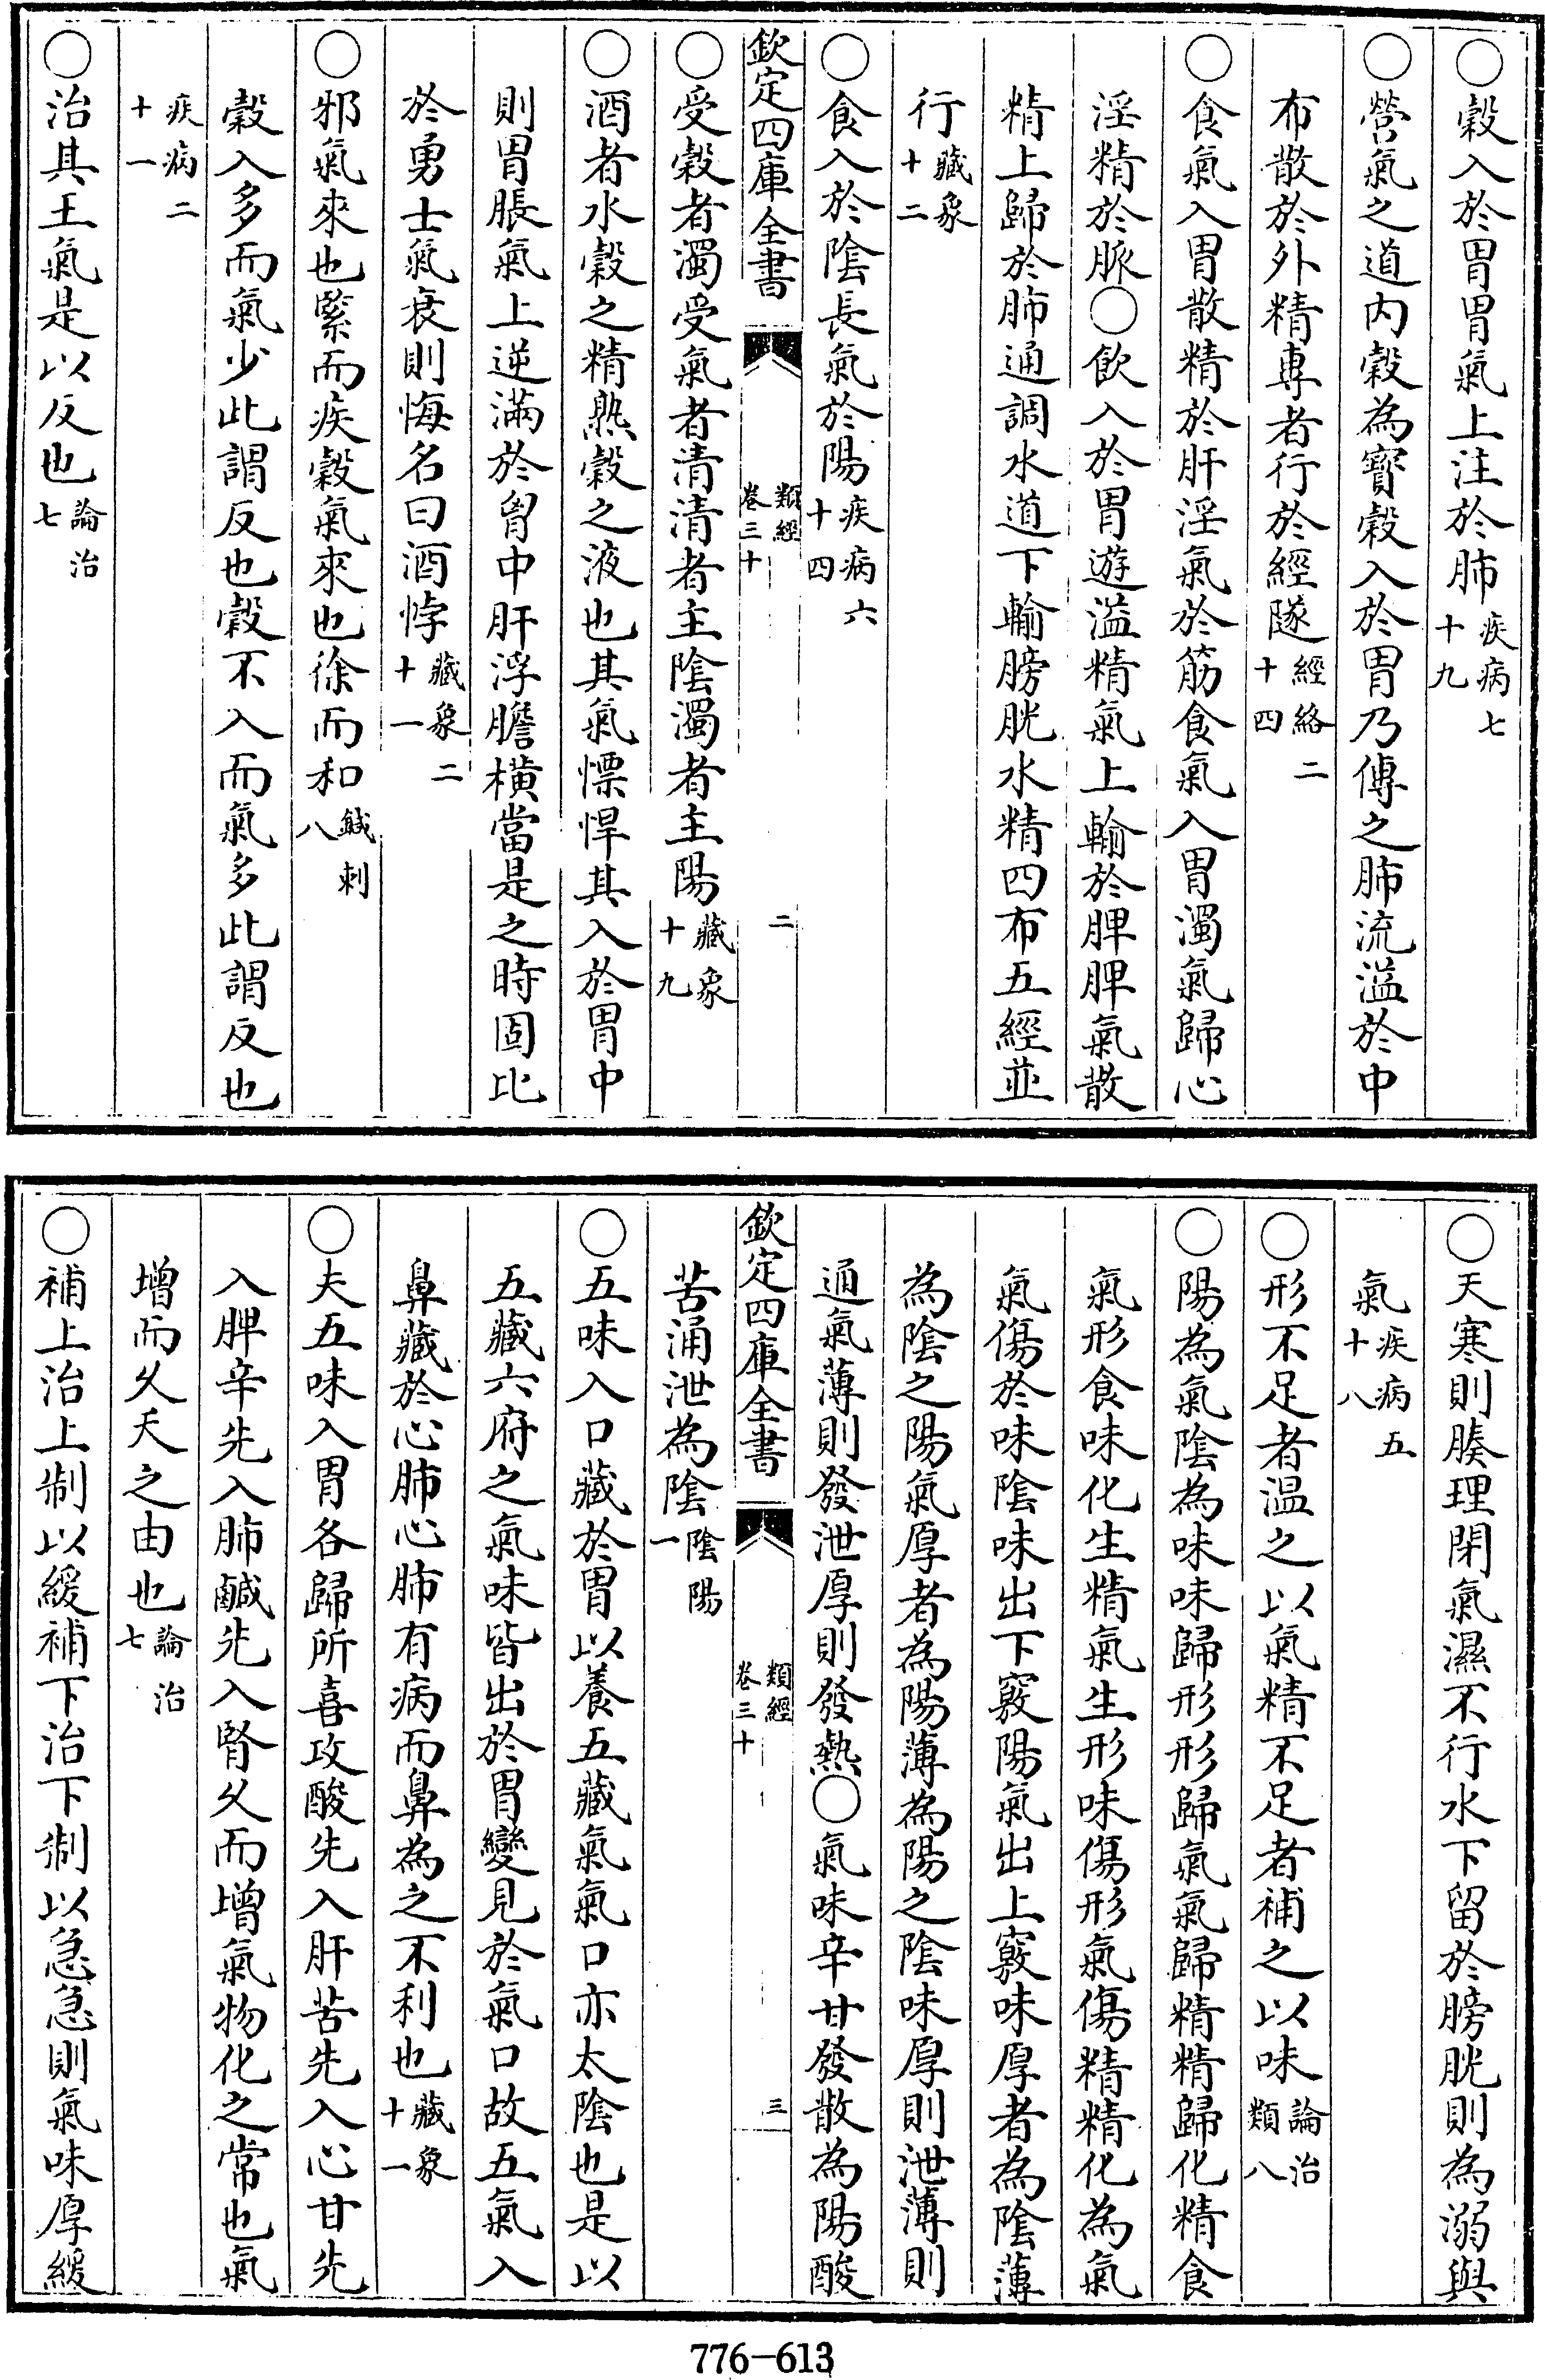 ○穀入於胃胃氣上注於肺疾病七十九
○營氣之道内穀為寳穀入於胃乃傳之肺流溢於中
布散於外精專者行於經隧經絡二十四
○食氣入胃散精於肝淫氣於筋食氣入胃濁氣歸心
淫精於脈○飲入於胃遊溢精氣上輸於脾脾氣散
精上歸於肺通調水道下輸膀胱水精四布五經並
行藏象十二
○食入於陰長氣於陽疾病六十四
欽定四庫全書 類經卷三十 二
○受穀者濁受氣者清清者主陰濁者主陽藏象十九
○酒者水穀之精熟穀之液也其氣慓悍其入於胃中
則胃脹氣上逆滿於胷中肝浮膽橫當是之時固比
於勇士氣衰則悔名曰酒悖藏象二十一
○邪氣來也緊而疾穀氣來也徐而和鍼刺八
穀入多而氣少此謂反也穀不入而氣多此謂反也
疾病二十一
○治其王氣是以反也論治七
○天寒則腠理閉氣濕不行水下留於膀胱則為溺與
氣疾病五十八
○形不足者温之以氣精不足者補之以味論治類八
○陽為氣陰為味味歸形形歸氣氣歸精精歸化精食
氣形食味化生精氣生形味傷形氣傷精精化為氣
氣傷於味陰味出下竅陽氣出上竅味厚者為陰薄
為陰之陽氣厚者為陽薄為陽之陰味厚則泄薄則
通氣薄則發泄厚則發熱○氣味辛甘發散為陽酸
欽定四庫全書 類經卷三十 三
苦涌泄為陰陰陽一
○五味入口藏於胃以養五藏氣氣口亦太陰也是以
五藏六府之氣味皆出於胃變見於氣口故五氣入
鼻藏於心肺心肺有病而鼻為之不利也藏象十一
○夫五味入胃各歸所喜攻酸先入肝苦先入心甘先
入脾辛先入肺鹹先入腎久而增氣物化之常也氣
增而久夭之由也論治七
○補上治上制以緩補下治下制以急急則氣味厚緩
776-613